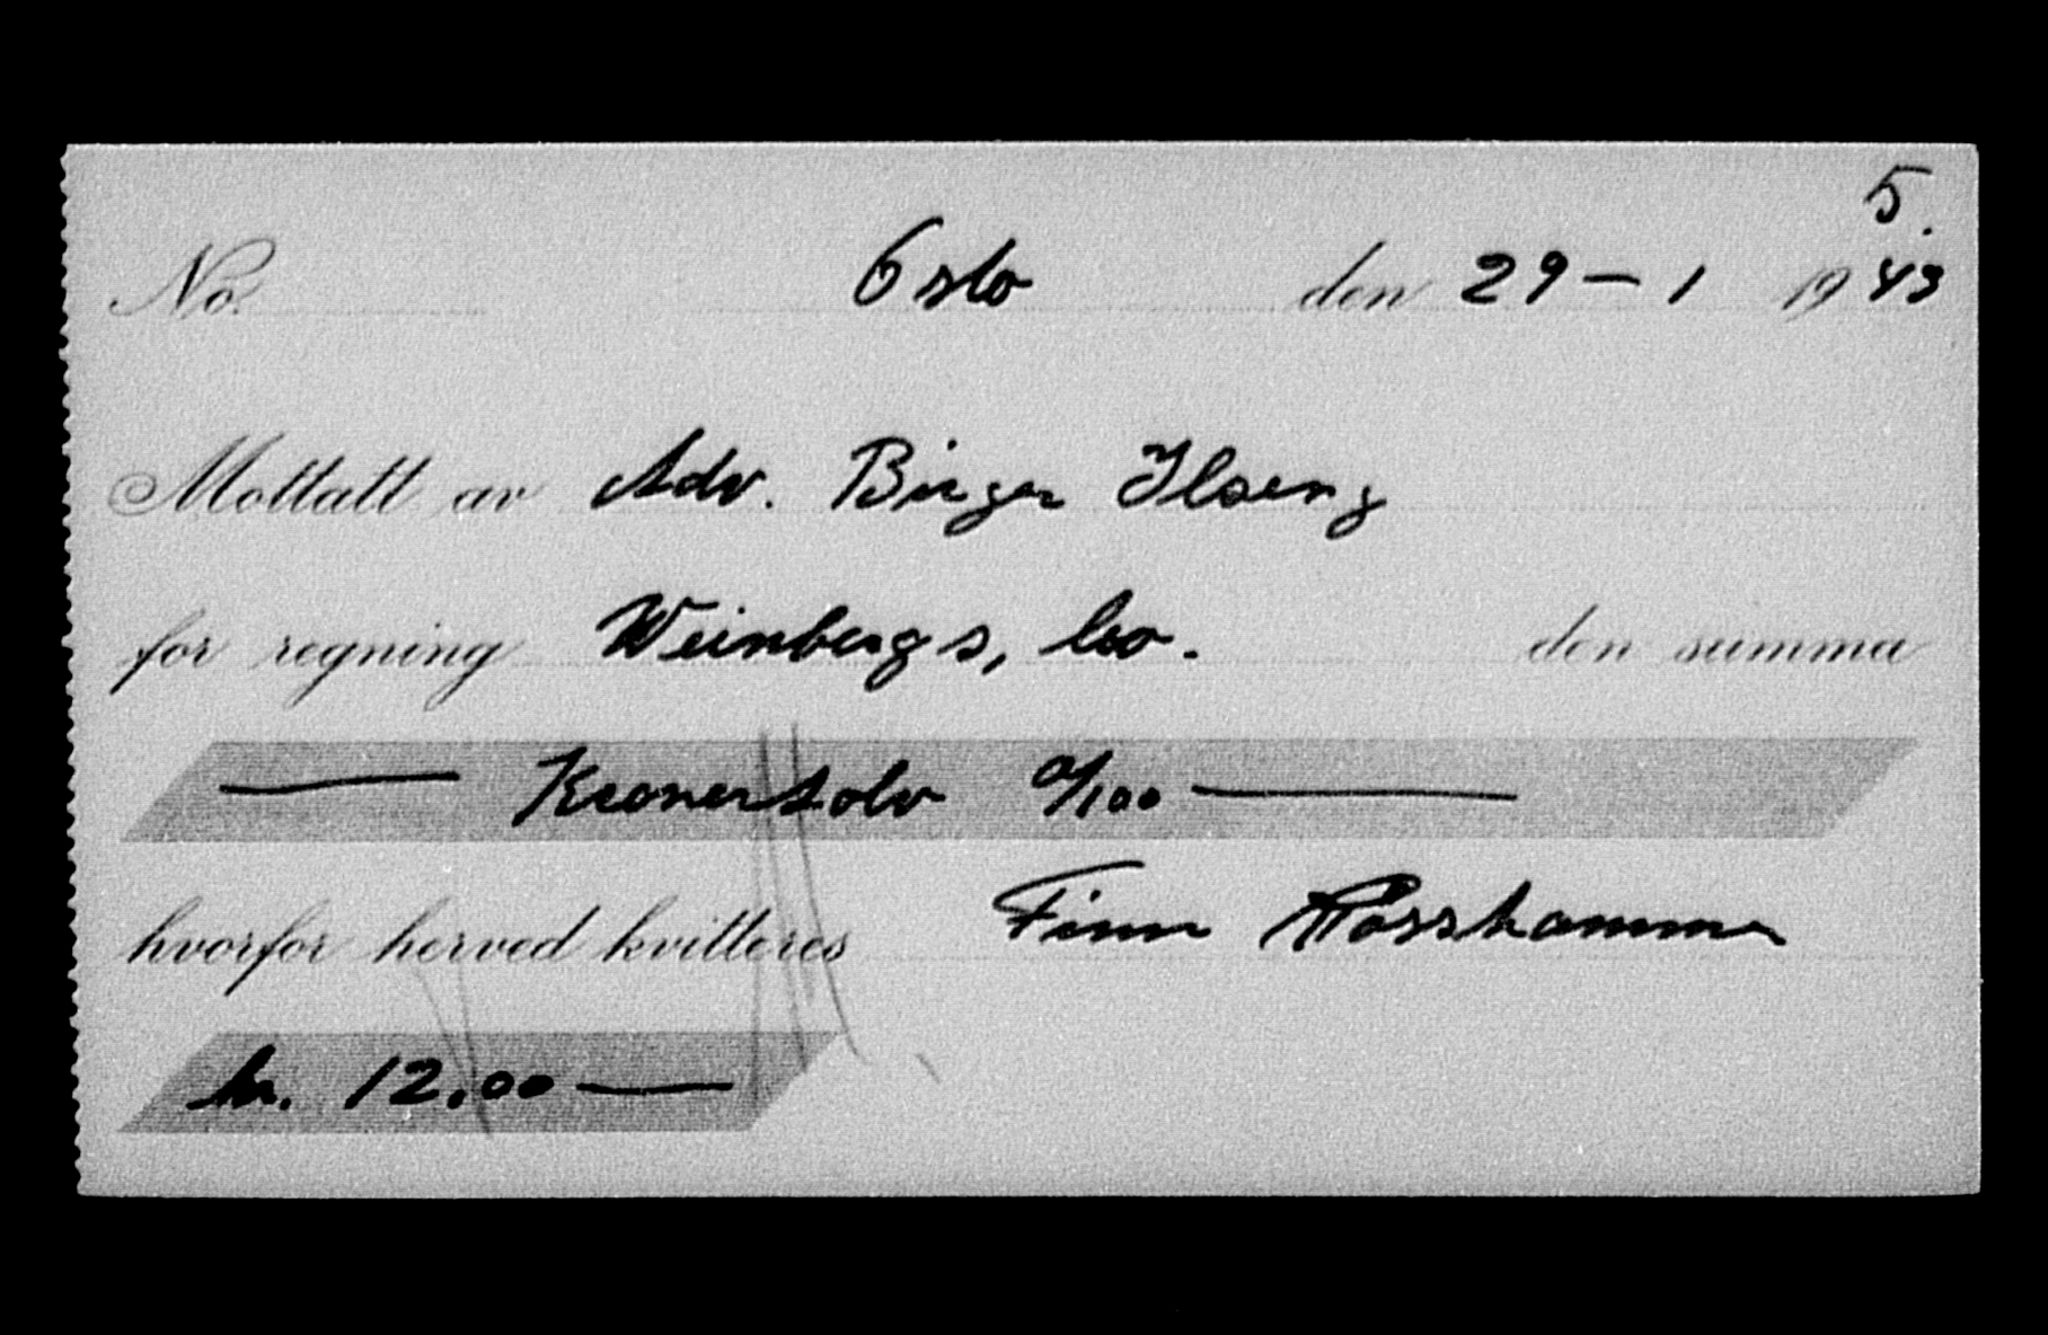 5.
No. Oslo den 29 - 1 1943
Mottatt av Adv. Birger Ilseng
for regning Weinbergs, bo. den summa
— Kroner tolv 0/100 —
hvorfor herved kvitteres Finn
kr. 12.00 —